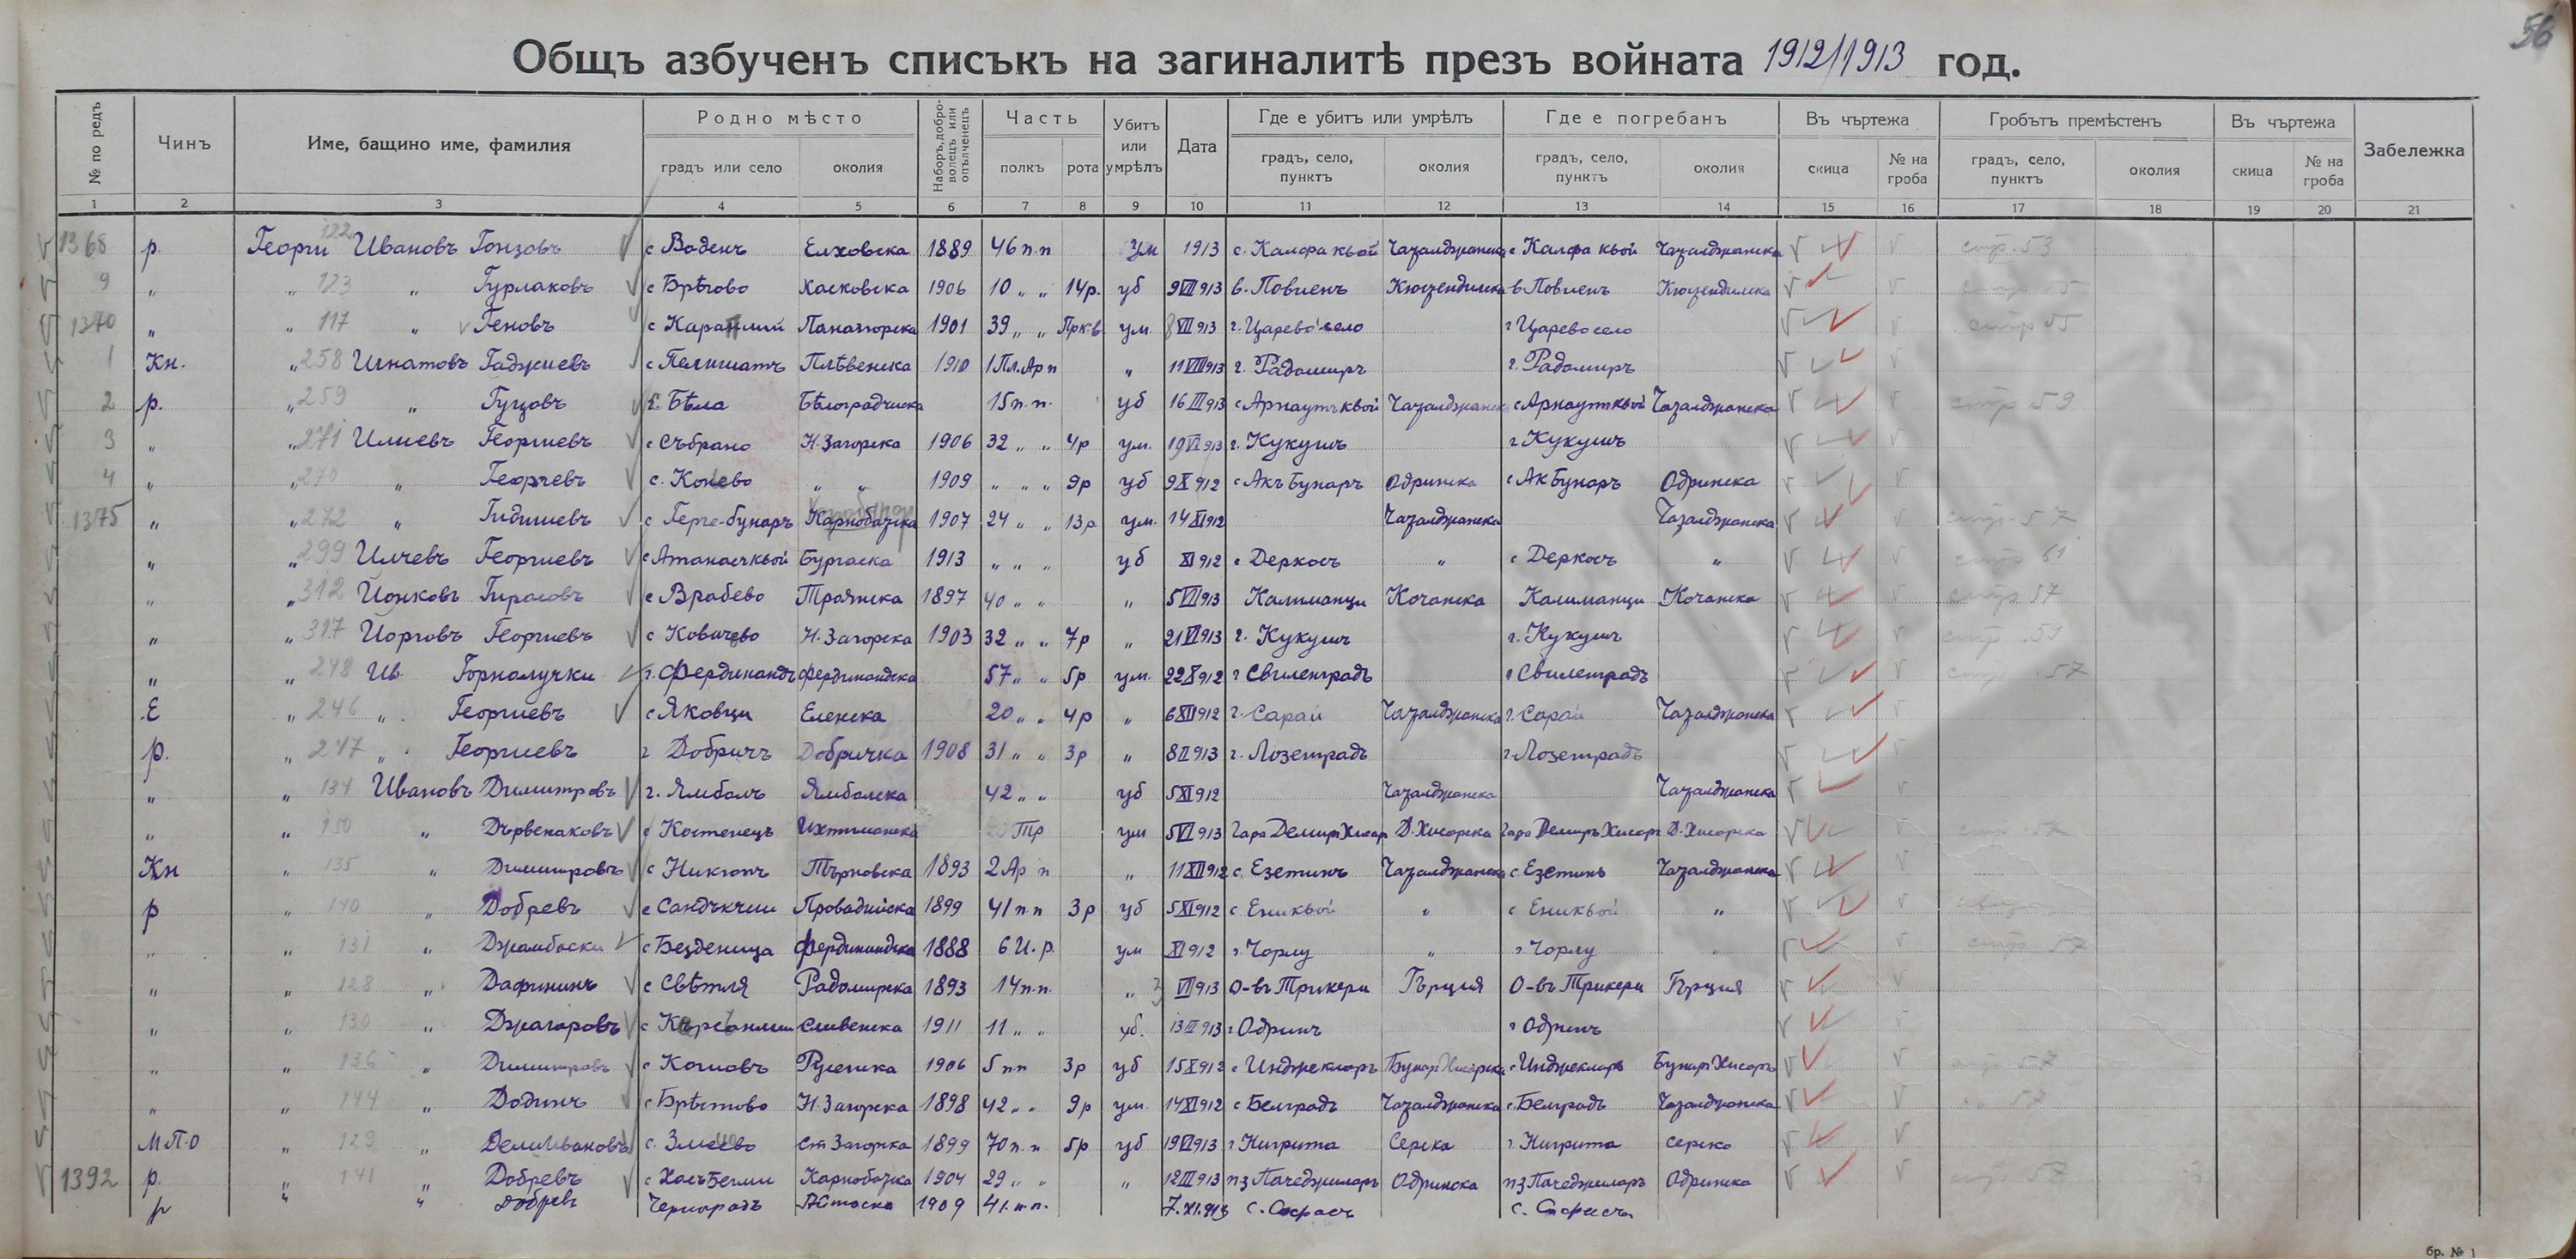 56
Общъ азбученъ списъкъ на загиналитѣ презъ войната 1912/1913 год.
№ по редъ Чинъ Име, бащино име, фамилия Родно мѣсто Наборъ, добро-волецъ или опълченецъ Часть Убитъ или умрѣлъ Дата Где е убитъ или умрѣлъ Где е погребанъ Въ чъртежа Гробътъ премѣстенъ Въ чъртежа Забележка
градъ или село околия полкъ рота градъ, село, пунктъ околия градъ, село, пунктъ околия скица № на гроба градъ, село, пунктъ околия скица № на гроба
1 2 3 4 5 6 7 8 9 10 11 12 13 14 15 16 17 18 19 20 21
1368 р. Георги 122 Ивановъ Гонзовъ с Воденъ Елховска 1889 46 п.п ум 1913 с. Калфа кьой Чаталджанска с Калфа кьой Чаталджанска стр. 53
9 „ „ 123 „ Гурлаковъ с Брѣгово Хасковска 1906 10 „ „ 14р. уб 9 VII 913 в. Повиенъ Кюстендилска в Повиенъ Кюстендилска
1370 „ „ 117 „ Геновъ с Панагюрска 1901 39 „ „ ум. 8 VII 913 г. Царево село г Царево село стр 55
1 Кн. „ 258 Игнатовъ Гаджиевъ с Пелишатъ Плѣвенска 1910 1 Пл. Ар п „ 11 VIII 913 г. Радомиръ г. Радомиръ
2 р. „ 259 „ Гуцовъ с. Бѣла Бѣлоградчиска 15 п.п. уб 16 III 913 с Арнауткьой Чаталджанска с Арнауткьой Чаталджанска стр 59
3 „ „ 271 Илиевъ Георгиевъ с Събрано Н. Загорска 1906 32 „ „ 4р ум. 19 VI 913 г. Кукушъ г Кукушъ
4 „ „ 270 „ Георгевъ с. Конево „ „ 1909 „ „ „ 9р уб 9 X 912 с Акъ Бунаръ Одринска с Ак Бунаръ Одринска
1375 „ „ 272 „ Гидишевъ с Герге-бунаръ Карнобатска 1907 24 „ „ 13р ум. 14 XI 912 Чаталджанска Чаталджанска стр. 57
„ „ 299 Илчевъ Георгиевъ с Атанаскьой Бургаска 1913 „ „ „ уб XI 912 с Деркосъ „ с Деркосъ „ стр 61
„ „ 312 Йонковъ Гирасовъ с Врабево Троянска 1897 40 „ „ „ 5 VII 913 Калиманци Кочанска Калиманци Кочанска стр 57
„ „ 317 Йорговъ Георгиевъ с Ковачево Н. Загорска 1903 32 „ „ 7р „ 21 VI 913 г. Кукушъ г. Кукушъ стр. 59
„ „ 248 Ив Горналучки г. Фердинандъ Фердинандска 57 „ „ 5р ум. 22 X 912 г Свиленградъ г Свиленградъ стр. 57
Е „ 246 „ Георгиевъ с Яковци Еленска 20 „ „ 4р „ 6 XII 912 г. Сарай Чаталджанска г. Сарай Чаталджанска
р. „ 247 „ Георгиевъ г Добричъ Добричка 1908 31 „ „ 3р „ 8 II 913 г. Лозенградъ г. Лозенградъ
„ „ 134 Ивановъ Димитровъ г. Ямболъ Ямболска 42 „ „ уб 5 XI 912 Чаталджанска Чаталджанска
„ „ 150 „ Дървенаковъ с Костенецъ Ихтиманска Тр ум 5 VI 913 Гара Демиръ Хисаръ Д. Хисарска Гара Демиръ Хисаръ Д. Хисарска
Кн „ 135 „ Димитровъ с Никюпъ Търновска 1893 2 Ар п „ 11 XII 912 с. Езетинъ Чаталджанска с. Езетинъ Чаталджанска
р „ 140 „ Добревъ с Сандъкчии Провадийска 1899 41 п.п 3р уб 5 XI 912 с Еникьой „ с Еникьой „
„ „ 131 „ Джамбаски с Безденица Фердинандска 1888 6 И. р. ум XI 912 г. Чорлу „ г. Чорлу стр 57
„ „ 128 „ Дафининъ с Свѣтля Радомирска 1893 14 п.п. „ VII 913 О-въ Трикери Гърция О-въ Трикери Гърция
„ „ 130 „ Драгаровъ с Сливенска 1911 11 „ „ уб. 13 III 913 г Одринъ г Одринъ
„ „ 136 „ Димитровъ с Кошовъ Русенска 1906 5 пп 3р уб 15 X 912 с Инджекларъ Бунаръ Хисарска с Инджекларъ Бунаръ Хисаръ стр 57
„ „ 144 „ Додинъ с Брѣстово Н. Загорска 1898 42 „ „ 9р ум. 14 XI 912 с Белградъ Чаталджанска с. Белградъ Чаталджанска
М.П.О „ 129 „ Делиивановъ с. Змеево Ст Загорска 1899 70 п.п 5р уб 19 VI 913 г Нигрита Серска г. Нигрита Серско
1392 р. „ 141 „ Добревъ с Хасъ Бегли Карнобатска 1904 29 „ „ „ 12 III 913 пз Пачеджиларъ Одринска пз Пачеджиларъ Одринска стр 57
р „ „ Добревъ Черноградъ Айтоска 1909 41. п.п. 7. XI. 913 с. Софасъ с. Софасъ
бр. № 1